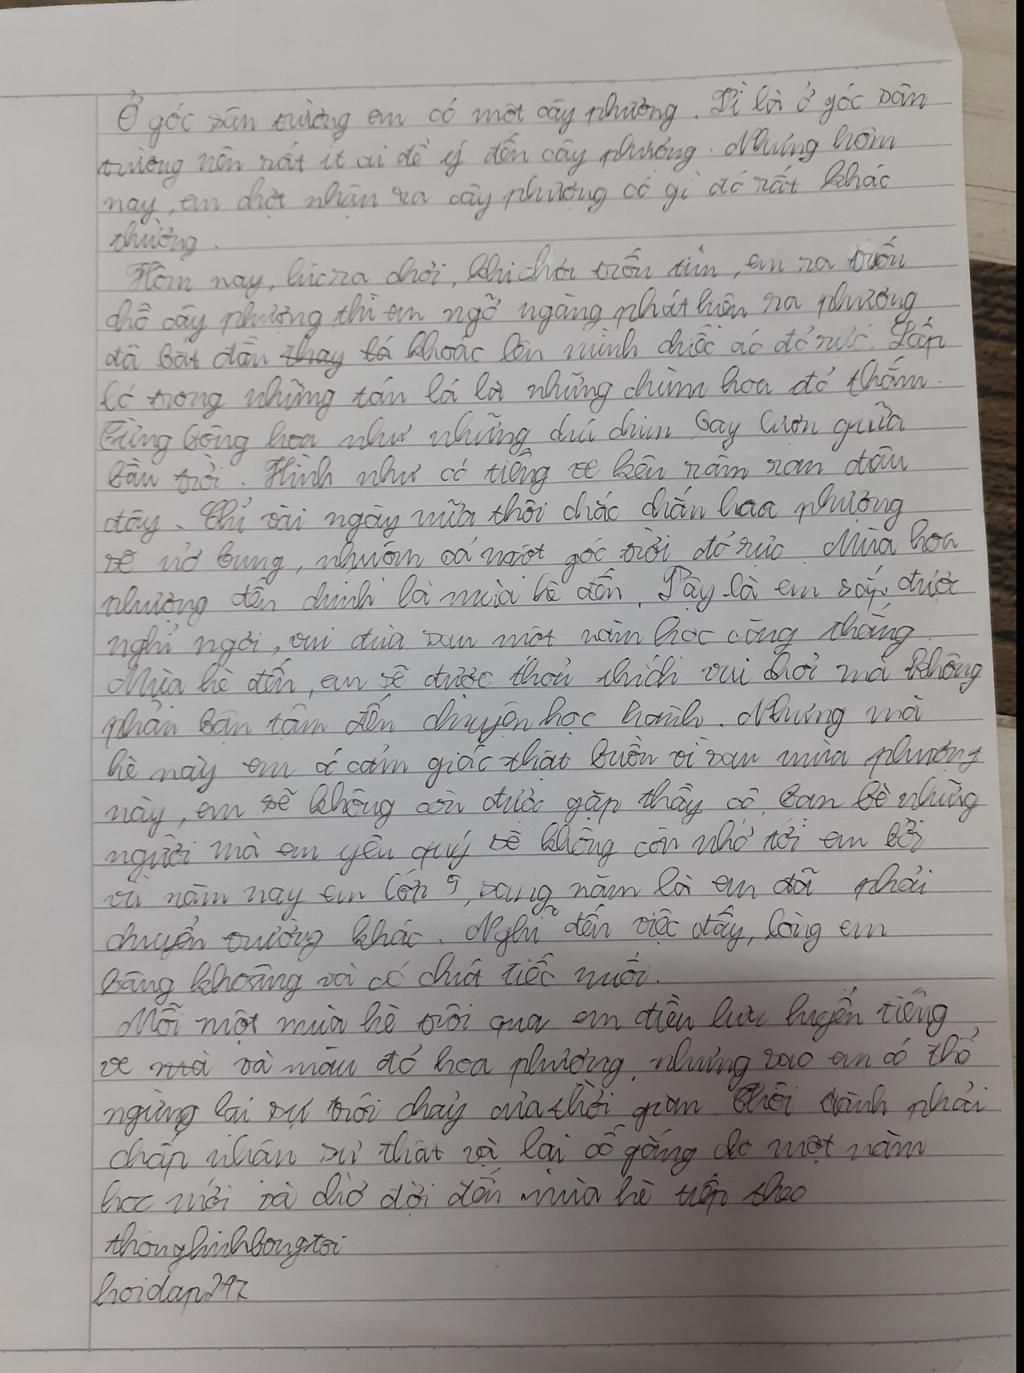 Ở góc sân trường em có một cây phượng. Vì là ở góc sân
trường nên rất ít ai để ý đến cây phượng. Nhưng hôm
nay, em chợt nhận ra cây phượng có gì đó rất khác
thường.
Hôm nay, lúc ra chơi, khi chơi trốn tìm, em ra trốn
chỗ cây phượng thì em ngỡ ngàng phát hiện ra phượng
đã bắt đầu thay lá khoác lên mình chiếc áo đỏ rực. Lấp
ló trong những tán lá là những chùm hoa đỏ thắm.
Từng bông hoa như những chú chim bay lượn giữa
bầu trời. Hình như có tiếng ve kêu râm ran đâu
đây. Chỉ vài ngày nữa thôi chắc chắn hoa phượng
sẽ nở bung, nhuốm cả một góc trời đỏ rực. Mùa hoa
phượng đến chính là mùa hè đến. Vậy là em sắp được
nghỉ ngơi, vui đùa sau một năm học căng thẳng.
Mùa hè đến, em sẽ được thoả thích vui chơi mà không
phải bận tâm đến chuyện học hành. Nhưng mà
hè này em có cảm giác thật buồn vì sau mùa phượng
này, em sẽ không còn được gặp thầy cô, bạn bè những
người mà em yêu quý sẽ không còn nhớ tới em bởi
vì năm nay em lớp 5, sang năm là em đã phải
chuyển trường khác. Nghĩ đến việc đấy, lòng em
bâng khuâng và có chút tiếc nuối.
Mỗi một mùa hè trôi qua em đều lưu luyến tiếng
ve mà và màu đỏ hoa phượng, nhưng sao em có thể
ngừng lại sự trôi chảy của thời gian. Thôi đành phải
chấp nhận sự thật và lại cố gắng cho một năm
học mới và chờ đợi đến mùa hè tiếp theo
hoidap247